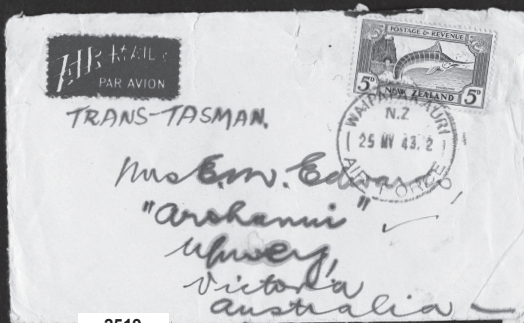 AIR MAIL
PAR AVION
POSTAGE & REVENUE
5D NEW ZEALAND 5D
WAIPAPAKAURI
N.Z
25 MY 43.2
AIR FORCE
TRANS-TASMAN.
Mrs E. W. Edwards,
"Arohanui"
Upwey,
Victoria
Australia
3510